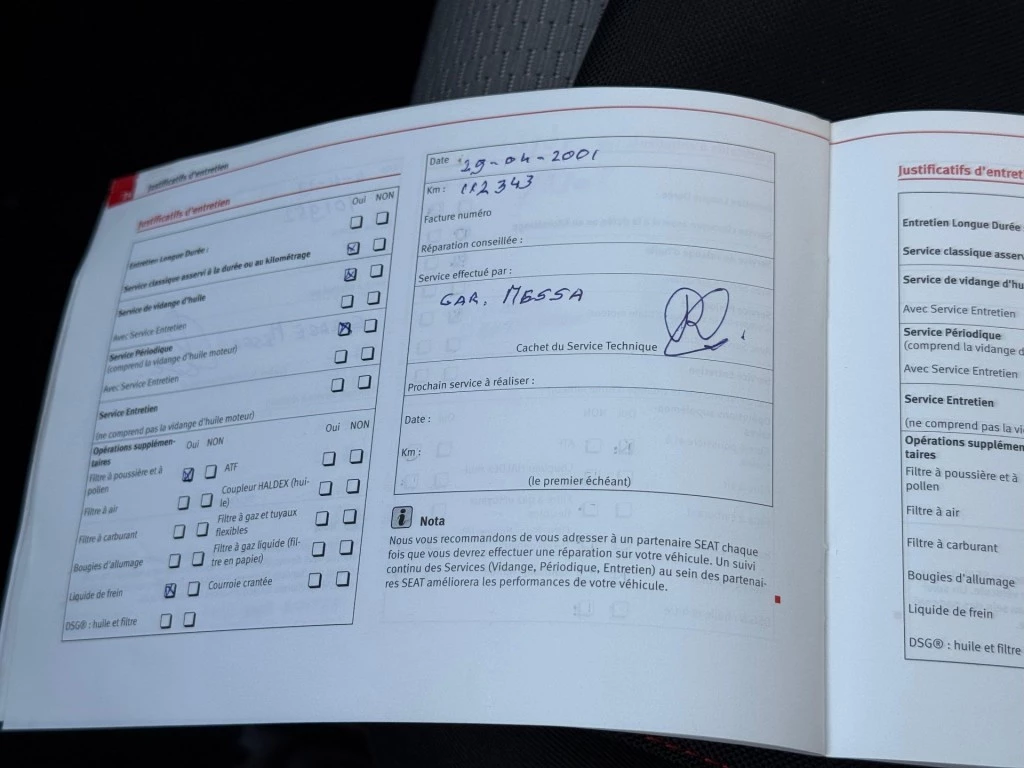 Justificatifs d'entretien
Justificatifs d'entretien
Oui NON
Entretien Longue Durée :
Service classique asservi à la durée ou au kilométrage
Service de vidange d'huile
Avec Service Entretien
Service Périodique
(comprend la vidange d'huile moteur)
Avec Service Entretien
Service Entretien
(ne comprend pas la vidange d'huile moteur)
Opérations supplémen-
taires
Oui NON
Oui NON
Filtre à poussière et à
pollen
ATF
Filtre à air
Coupleur HALDEX (hui-
le)
Filtre à carburant
Filtre à gaz et tuyaux
flexibles
Bougies d'allumage
Filtre à gaz liquide (fil-
tre en papier)
Liquide de frein
Courroie crantée
DSG® : huile et filtre
Date : 29-04-2001
Km : 112343
Facture numéro
Réparation conseillée :
Service effectué par :
GAR. MESSA
Cachet du Service Technique
Prochain service à réaliser :
Date :
Km :
(le premier échéant)
i Nota
Nous vous recommandons de vous adresser à un partenaire SEAT chaque
fois que vous devrez effectuer une réparation sur votre véhicule. Un suivi
continu des Services (Vidange, Périodique, Entretien) au sein des partenai-
res SEAT améliorera les performances de votre véhicule.
Justificatifs d'entreti
Entretien Longue Durée :
Service classique asserv
Service de vidange d'hu
Avec Service Entretien
Service Périodique
(comprend la vidange d
Avec Service Entretien
Service Entretien
(ne comprend pas la vi
Opérations supplémen
taires
Filtre à poussière et à
pollen
Filtre à air
Filtre à carburant
Bougies d'allumage
Liquide de frein
DSG® : huile et filtre